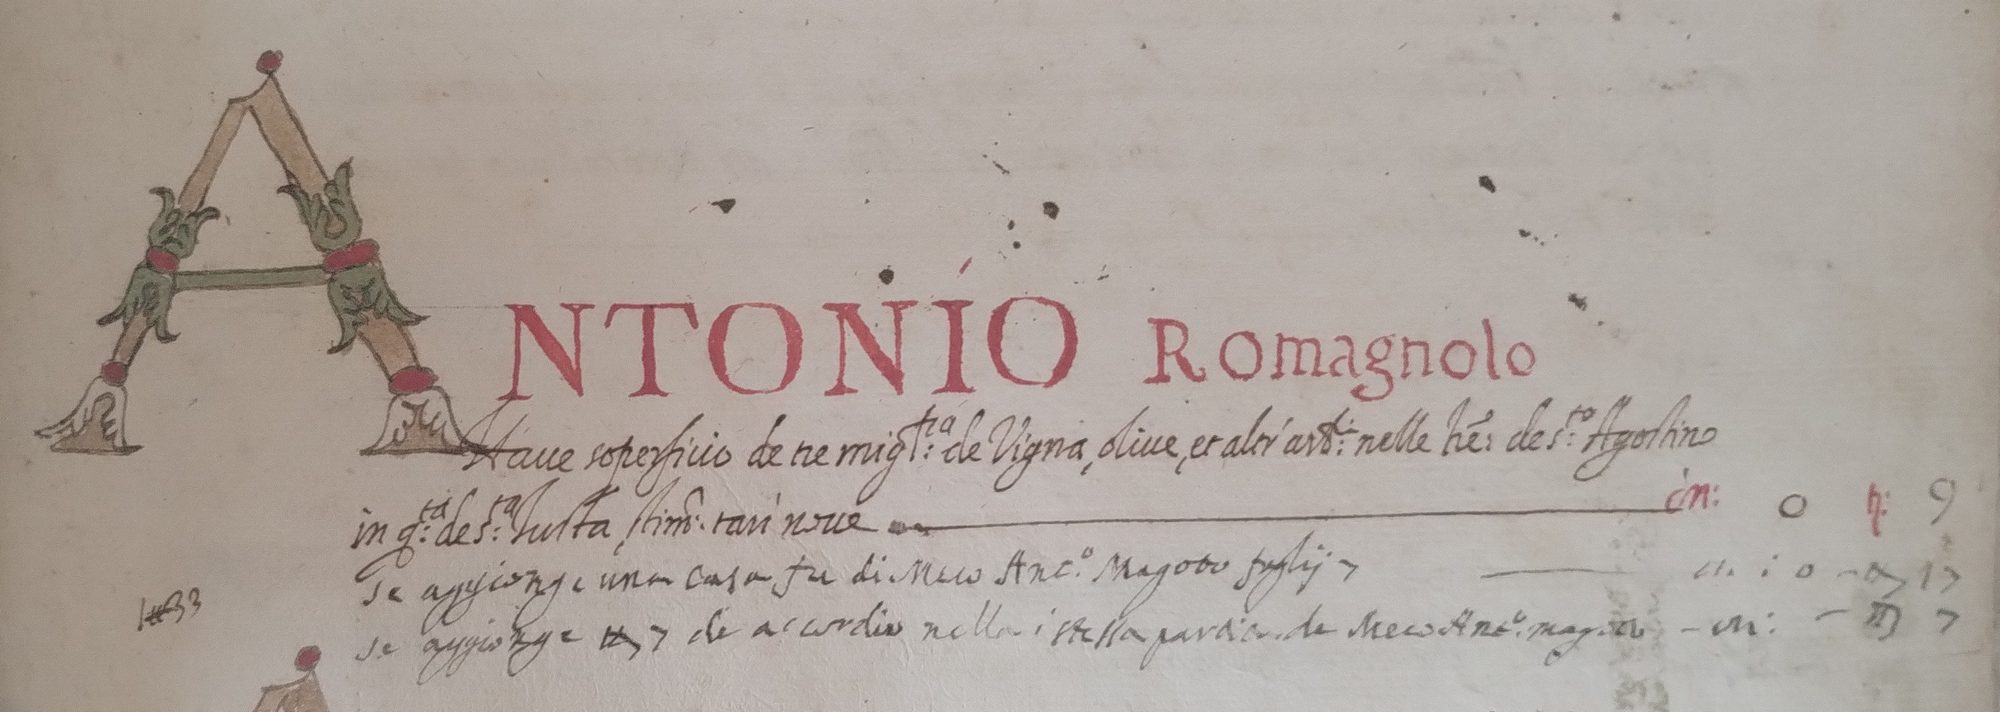 ANTONIO Romagnolo
Haue soperficio de tre migl:ra de Vigna, oliue, et altri arb:ri nelle he: de s:to Agostino
in q:ta de s:ta Iusta, stim: tarì noue on: 0 tt: 9
se aggionge una casa fu di Meco Ant:o Magoto foglij 7
se aggionge 7 de accordio nella istessa partia de Meco Ant:o on: 7